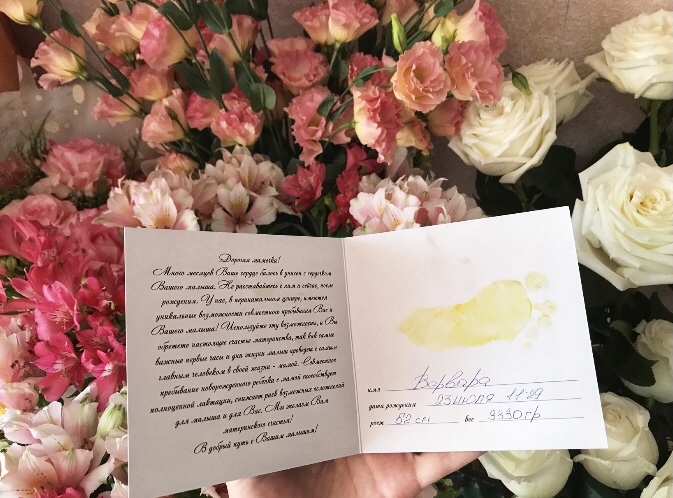 Дорогая мамочка!
Много месяцев Ваше сердце билось в унисон с сердцем
Вашего малыша. Не расставайтесь с ним и сейчас, после
рождения. У нас, в перинатальном центре, имеются
уникальные возможности совместного пребывания Вас и
Вашего малыша! Используйте эту возможность, и Вы
обретете настоящее счастье материнства, так как самые
важные первые часы и дни жизни малыш проведет с самым
главным человеком в своей жизни - мамой. Совместное
пребывание новорожденного ребенка с мамой способствует
полноценной лактации, снижает риск возможных осложнений
для малыша и для Вас. Мы желаем Вам
материнского счастья!
В добрый путь с Вашим малышом!
имя Варвара
дата рождения 23 июля 11:29
рост 52 см вес 3330 гр